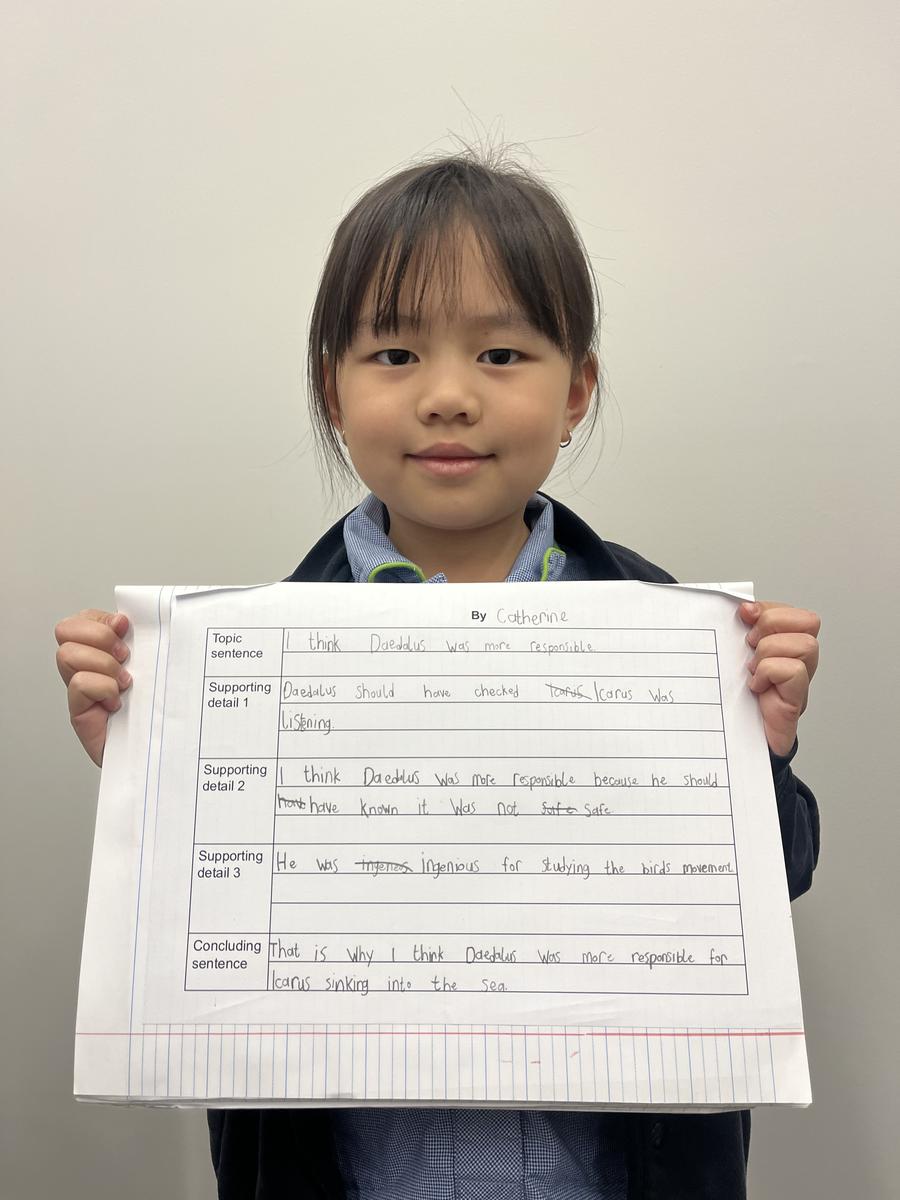 By Catherine
Topic
sentence
I think Daedalus was more responsible.
Supporting
detail 1
Daedalus should have checked Icarus Icarus was
listening.
Supporting
detail 2
I think Daedalus was more responsible because he should
have have known it was not safe safe
Supporting
detail 3
He was ingeneos ingenious for studying the birds movement
Concluding
sentence
That is why I think Daedalus was more responsible for
Icarus sinking into the sea.